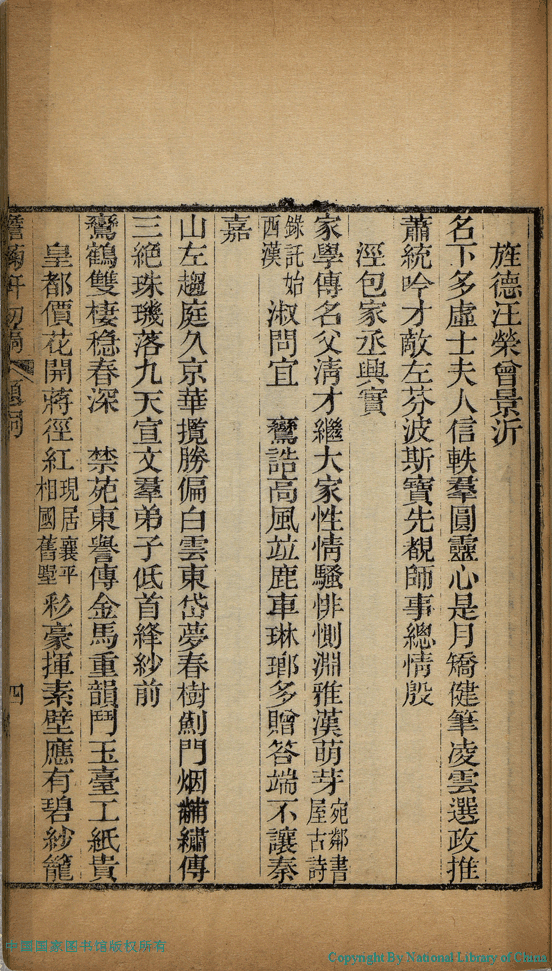 旌德汪榮會景沂
名下多虛士夫人信軼羣圓靈心是月矯健筆凌雲選政推
蕭統吟才敵左芬波斯寶先覩師事總情殷
涇包家丞興實
家學傳名父清才繼大家性情騷悱惻淵雅漢萌芽宛鄰書屋古詩
錄託始西漢淑問宜　鸞誥高風竝鹿車琳瑯多贈答端不讓秦
嘉
山左趨庭久京華攬勝偏白雲東岱夢春樹薊門烟黼繡傳
三絕珠璣落九天宣文羣弟子低首絳紗前
鸞鶴雙棲穩春深　禁苑東譽傳金馬重韻鬥玉臺工紙貴
皇都價花開蔣徑紅現居襄平相國舊墅彩豪揮素壁應有碧紗籠
澹菊軒初稿 題詞 四
中国国家图书馆版权所有
Copyright By National Library of China